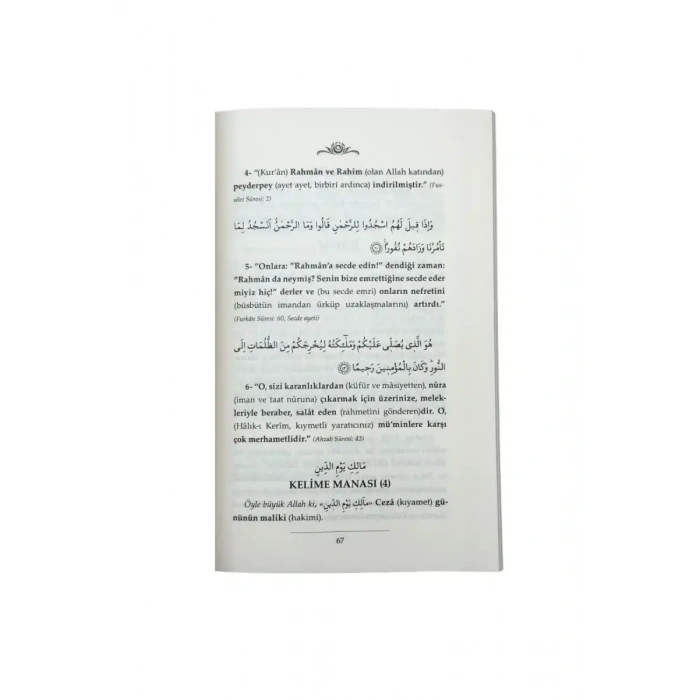 4- “(Kur’ân) Rahmân ve Rahîm (olan Allah katından)
peyderpey (ayet ayet, birbiri ardınca) indirilmiştir.” (Fus-
silet Sûresi: 2)
وَاِذَا ق۪يلَ لَهُمُ اسْجُدُوا لِلرَّحْمٰنِ قَالُوا وَمَا الرَّحْمٰنُ اَنَسْجُدُ لِمَا
تَأْمُرُنَا وَزَادَهُمْ نُفُورًا ﴿٦٠﴾
5- “Onlara: “Rahmân’a secde edin!” dendiği zaman:
“Rahmân da neymiş? Senin bize emrettiğine secde eder
miyiz hiç!” derler ve (bu secde emri) onların nefretini
(büsbütün imandan ürküp uzaklaşmalarını) artırdı.”
(Furkân Sûresi: 60, Secde ayeti)
هُوَ الَّذ۪ي يُصَلّ۪ي عَلَيْكُمْ وَمَلٰٓئِكَتُهُ لِيُخْرِجَكُمْ مِنَ الظُّلُمَاتِ اِلَى
النُّورِ وَكَانَ بِالْمُؤْمِن۪ينَ رَح۪يمًا ﴿٤٣﴾
6- “O, sizi karanlıklardan (küfür ve mâsiyetten), nûra
(iman ve taat nûruna) çıkarmak için üzerinize, melek-
leriyle beraber, salât eden (rahmetini gönderen)dir. O,
(Hâlık-ı Kerîm, kıymetli yaratıcınız) mü’minlere karşı
çok merhametlidir.” (Ahzab Sûresi: 43)
مَالِكِ يَوْمِ الدّ۪ينِ
KELİME MANASI (4)
Öyle büyük Allah ki, «مَالِكِ يَوْمِ الدّ۪ينِ» Cezâ (kıyamet) gü-
nünün maliki (hakimi).
67